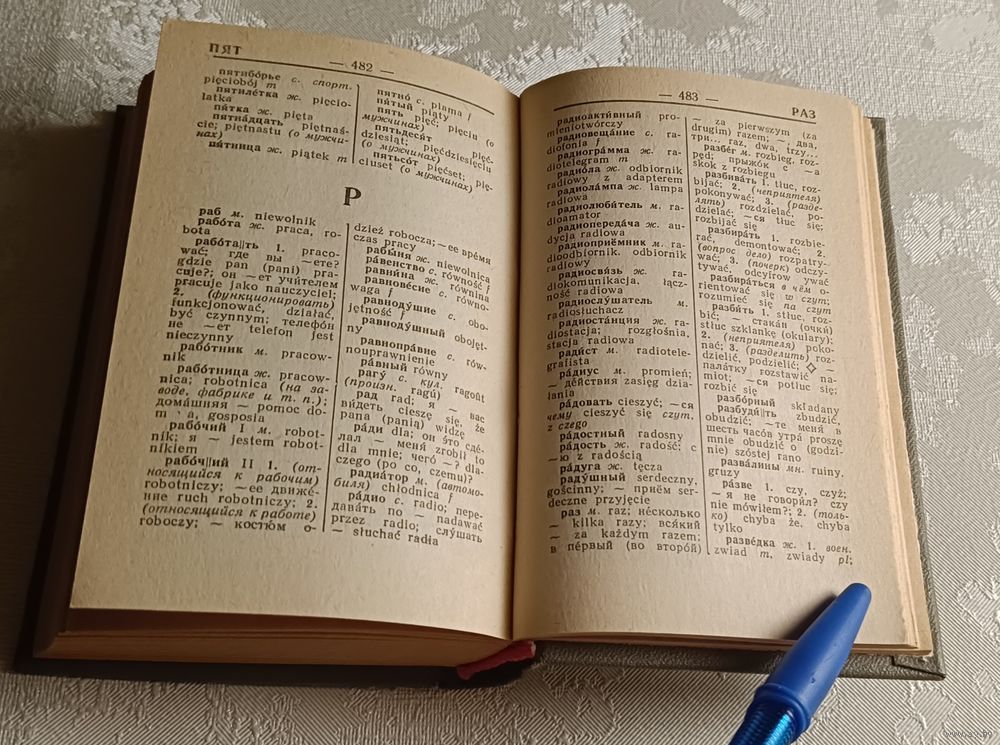 ПЯТ
— 482 —
пятибо́рье с. спорт.
pięciobój m
пятиле́тка ж. pięcio-
latka
пя́тка ж. pięta
пятна́дцать piętnaś-
cie; piętnastu (о мужчи-
нах)
пя́тница ж. piątek m
пятно́ с. plama f
пя́тый piąty
пять pięć; pięciu (о
мужчинах)
пятьдеся́т pięć-
dziesiąt; pięćdziesięciu
(о мужчинах)
пятьсо́т pięćset; pię-
ciuset (о мужчинах)
Р
раб м. niewolnik
рабо́та ж. praca, ro-
bota
рабо́та||ть 1. praco-
wać; где вы —ете?
gdzie pan (pani) pra-
cuje?; он —ет учи́телем
pracuje jako nauczyciel;
2. (функционировать)
funkcjonować, działać,
być czynnym; телефо́н
не —ет telefon jest
nieczynny
рабо́тник м. pracow-
nik
рабо́тница ж. pracow-
nica; robotnica (на за-
воде, фабрике и т. п.);
дома́шняя — pomoc do-
mowa, gosposia
рабо́чий I м. robot-
nik; я — jestem robot-
nikiem
рабо́ч||ий II 1. (от-
носящийся к рабочим)
robotniczy; —ее движе́-
ние ruch robotniczy; 2.
(относящийся к работе)
roboczy; — костю́м o-
dzież robocza; —ее вре́мя
czas pracy
рабы́ня ж. niewolnica
ра́венство с. równość f
равни́на ж. równina
равнове́сие с. równo-
waga f
равноду́шие с. obo-
jętność f
равноду́шный obojęt-
ny
равнопра́вие с. rów-
nouprawnienie
ра́вный równy
рагу́ с. кул. ragoût
(произн. ragú)
рад rad; я — вас
ви́деть cieszę się, że
pana (panią) widzę
ра́ди dla; он э́то сде́-
лал — меня́ zrobił to
dla mnie; чего́ —? dla-
czego (po co, czemu)?
радиа́тор м. (автомо-
биля) chłodnica f
ра́дио с. radio; пере-
дава́ть по — nadawać
przez radio; слу́шать
— słuchać radia
— 483 —
РАЗ
радиоакти́вный pro-
mieniotwórczy
радиовеща́ние с. ra-
diofonia f
радиогра́мма ж. ra-
diotelegram m
радио́ла ж. odbiornik
radiowy z adapterem
радиола́мпа ж. lampa
radiowa
радиолюби́тель м. ra-
dioamator
радиопереда́ча ж. au-
dycja radiowa
радиоприёмник м. ra-
dioodbiornik, odbiornik
radiowy
радиосвя́зь ж. ra-
diokomunikacja, łącz-
ność radiowa
радиослу́шатель м.
radiosłuchacz
радиоста́нция ж. ra-
diostacja; rozgłośnia,
stacja radiowa
ради́ст м. radiotele-
grafista
ра́диус м. promień;
— де́йствия zasięg dzia-
łania
ра́довать cieszyć; —ся
чему cieszyć się czym,
z czego
ра́достный radosny
ра́дость ж. radość; с
—ю z radością
ра́дуга ж. tęcza
раду́шный serdeczny,
gościnny; — приём ser-
deczne przyjęcie
раз м. raz; не́сколько
— kilka razy; вся́кий
— za każdym razem;
в пе́рвый (во второ́й)
— za pierwszym (za
drugim) razem; —, два,
три... raz, dwa, trzy...
разбе́г м. rozbieg, roz-
pęd; прыжо́к с —а
skok z rozbiegu
разбива́ть 1. tłuc, roz-
bijać; 2. (неприятеля)
pokonywać; 3. (разде-
лять) rozdzielać, po-
dzielać; —ся tłuc się;
rozbijać się
разбира́ть 1. rozbie-
rać, demontować; 2.
(вопрос дело) rozpatry-
wać; 3. (почерк) odczy-
tywać, odcyfrowywać
разбира́ться в чём o-
rientować się w czym;
rozumieć się na czym
разби́ть 1. stłuc, roz-
bić; — стака́н (очки́)
stłuc szklankę (okulary);
2. (неприятеля) poko-
nać; 3. (разделить) roz-
dzielić, podzielić; ◇ —
пала́тку rozstawić na-
miot; —ся potłuc się;
rozbić się
разбо́рный składany
разбуди́||ть zbudzić,
obudzić; —те меня́ в
шесть часо́в утра́ proszę
mnie obudzić o (godzi-
nie) szóstej rano
разва́лины мн. ruiny,
gruzy
ра́зве 1. czy, czyż;
— я не говори́л? czy
nie mówiłem?; 2. (толь-
ко) chyba że, chyba
tylko
разве́дка ж. 1. воен.
zwiad m, zwiady pl;